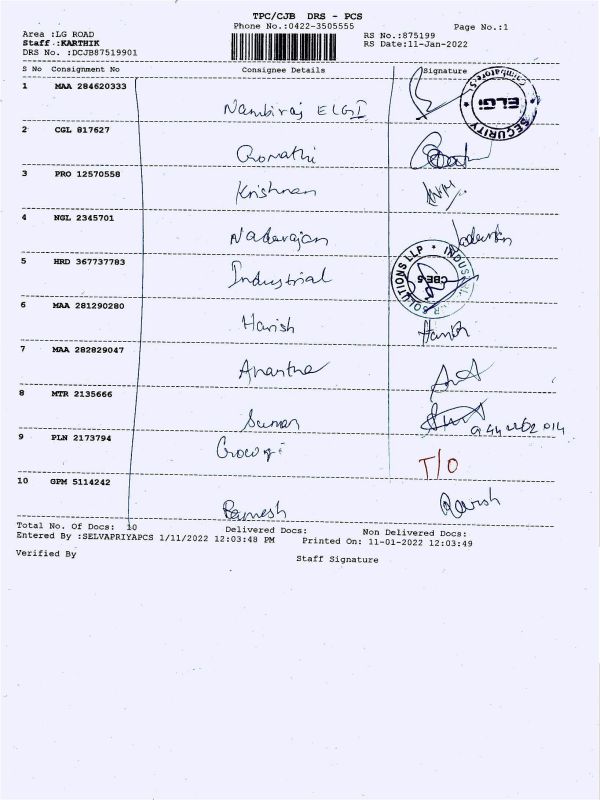 TPC/CJB DRS - PCS
Phone No.:0422-3505555 Page No.:1
Area :LG ROAD RS No.:875199
Staff :KARTHIK RS Date:11-Jan-2022
DRS No. :DCJB87519901
S No Consignment No Consignee Details Signature
1 MAA 284620333
Nambiraj ELGI
SECURITY ELGi Coimbatore-5
2 CGL 817627
Gomathi
3 PRO 12570558
Krishnan
4 NGL 2345701
Natarajan
5 HRD 367737783
Industrial
SOLUTIONS LLP * INDUS CBE-5
6 MAA 281290280
Harish
7 MAA 282829047
Anantha
8 MTR 2135666
Suman
9 PLN 2173794
T/O
10 GPM 5114242
Ramesh
Total No. Of Docs: 10 Delivered Docs: Non Delivered Docs:
Entered By :SELVAPRIYAPCS 1/11/2022 12:03:48 PM Printed On: 11-01-2022 12:03:49
Verified By Staff Signature